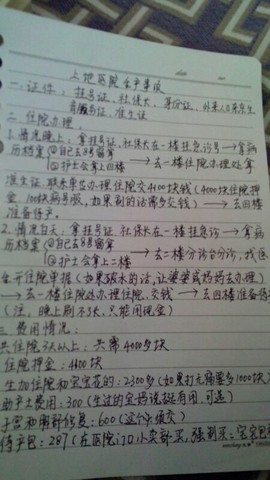 上地医院生产事项
一. 证件: 挂号证, 社保卡, 身份证, 外来人口来京生
育服务证, 准生证
二 住院办理:
1. 情况晚上: 拿挂号证, 社保卡在一楼挂急诊号→拿病
历档案 ①自己去8号窗拿
②护士会拿上四楼 →去一楼住院办理处拿
准生证, 联系单去办理住院交4400块钱(4000块住院押
金, 100块病号服, 如果剖的话需多交钱) →去四楼
准备待产.
2. 情况白天: 拿挂号证, 社保卡在一楼挂急诊→拿病
历档案 ①自己去8号窗拿
②护士会拿二楼 →去二楼分诊台分诊, 找医
生开住院单据 (如果破水的话, 让婆婆或妈妈去办理)
→去一楼住院处办理住院, 交钱 →去四楼准备待产
(注, 晚上刷不了卡, 只能用现金)
三 费用情况:
共住院3天以上: 共需4000多块
住院押金: 4400块
生加住院和宝宝花的: 2300多 (如果打无痛要多1000块)
助产士费用: 300 (生过的宝妈说挺有用, 可选)
子宫和胸部修复: 600 (这个必须交)
待产包: 287 (在医院门口小卖部买, 强制买; 宝宝包被